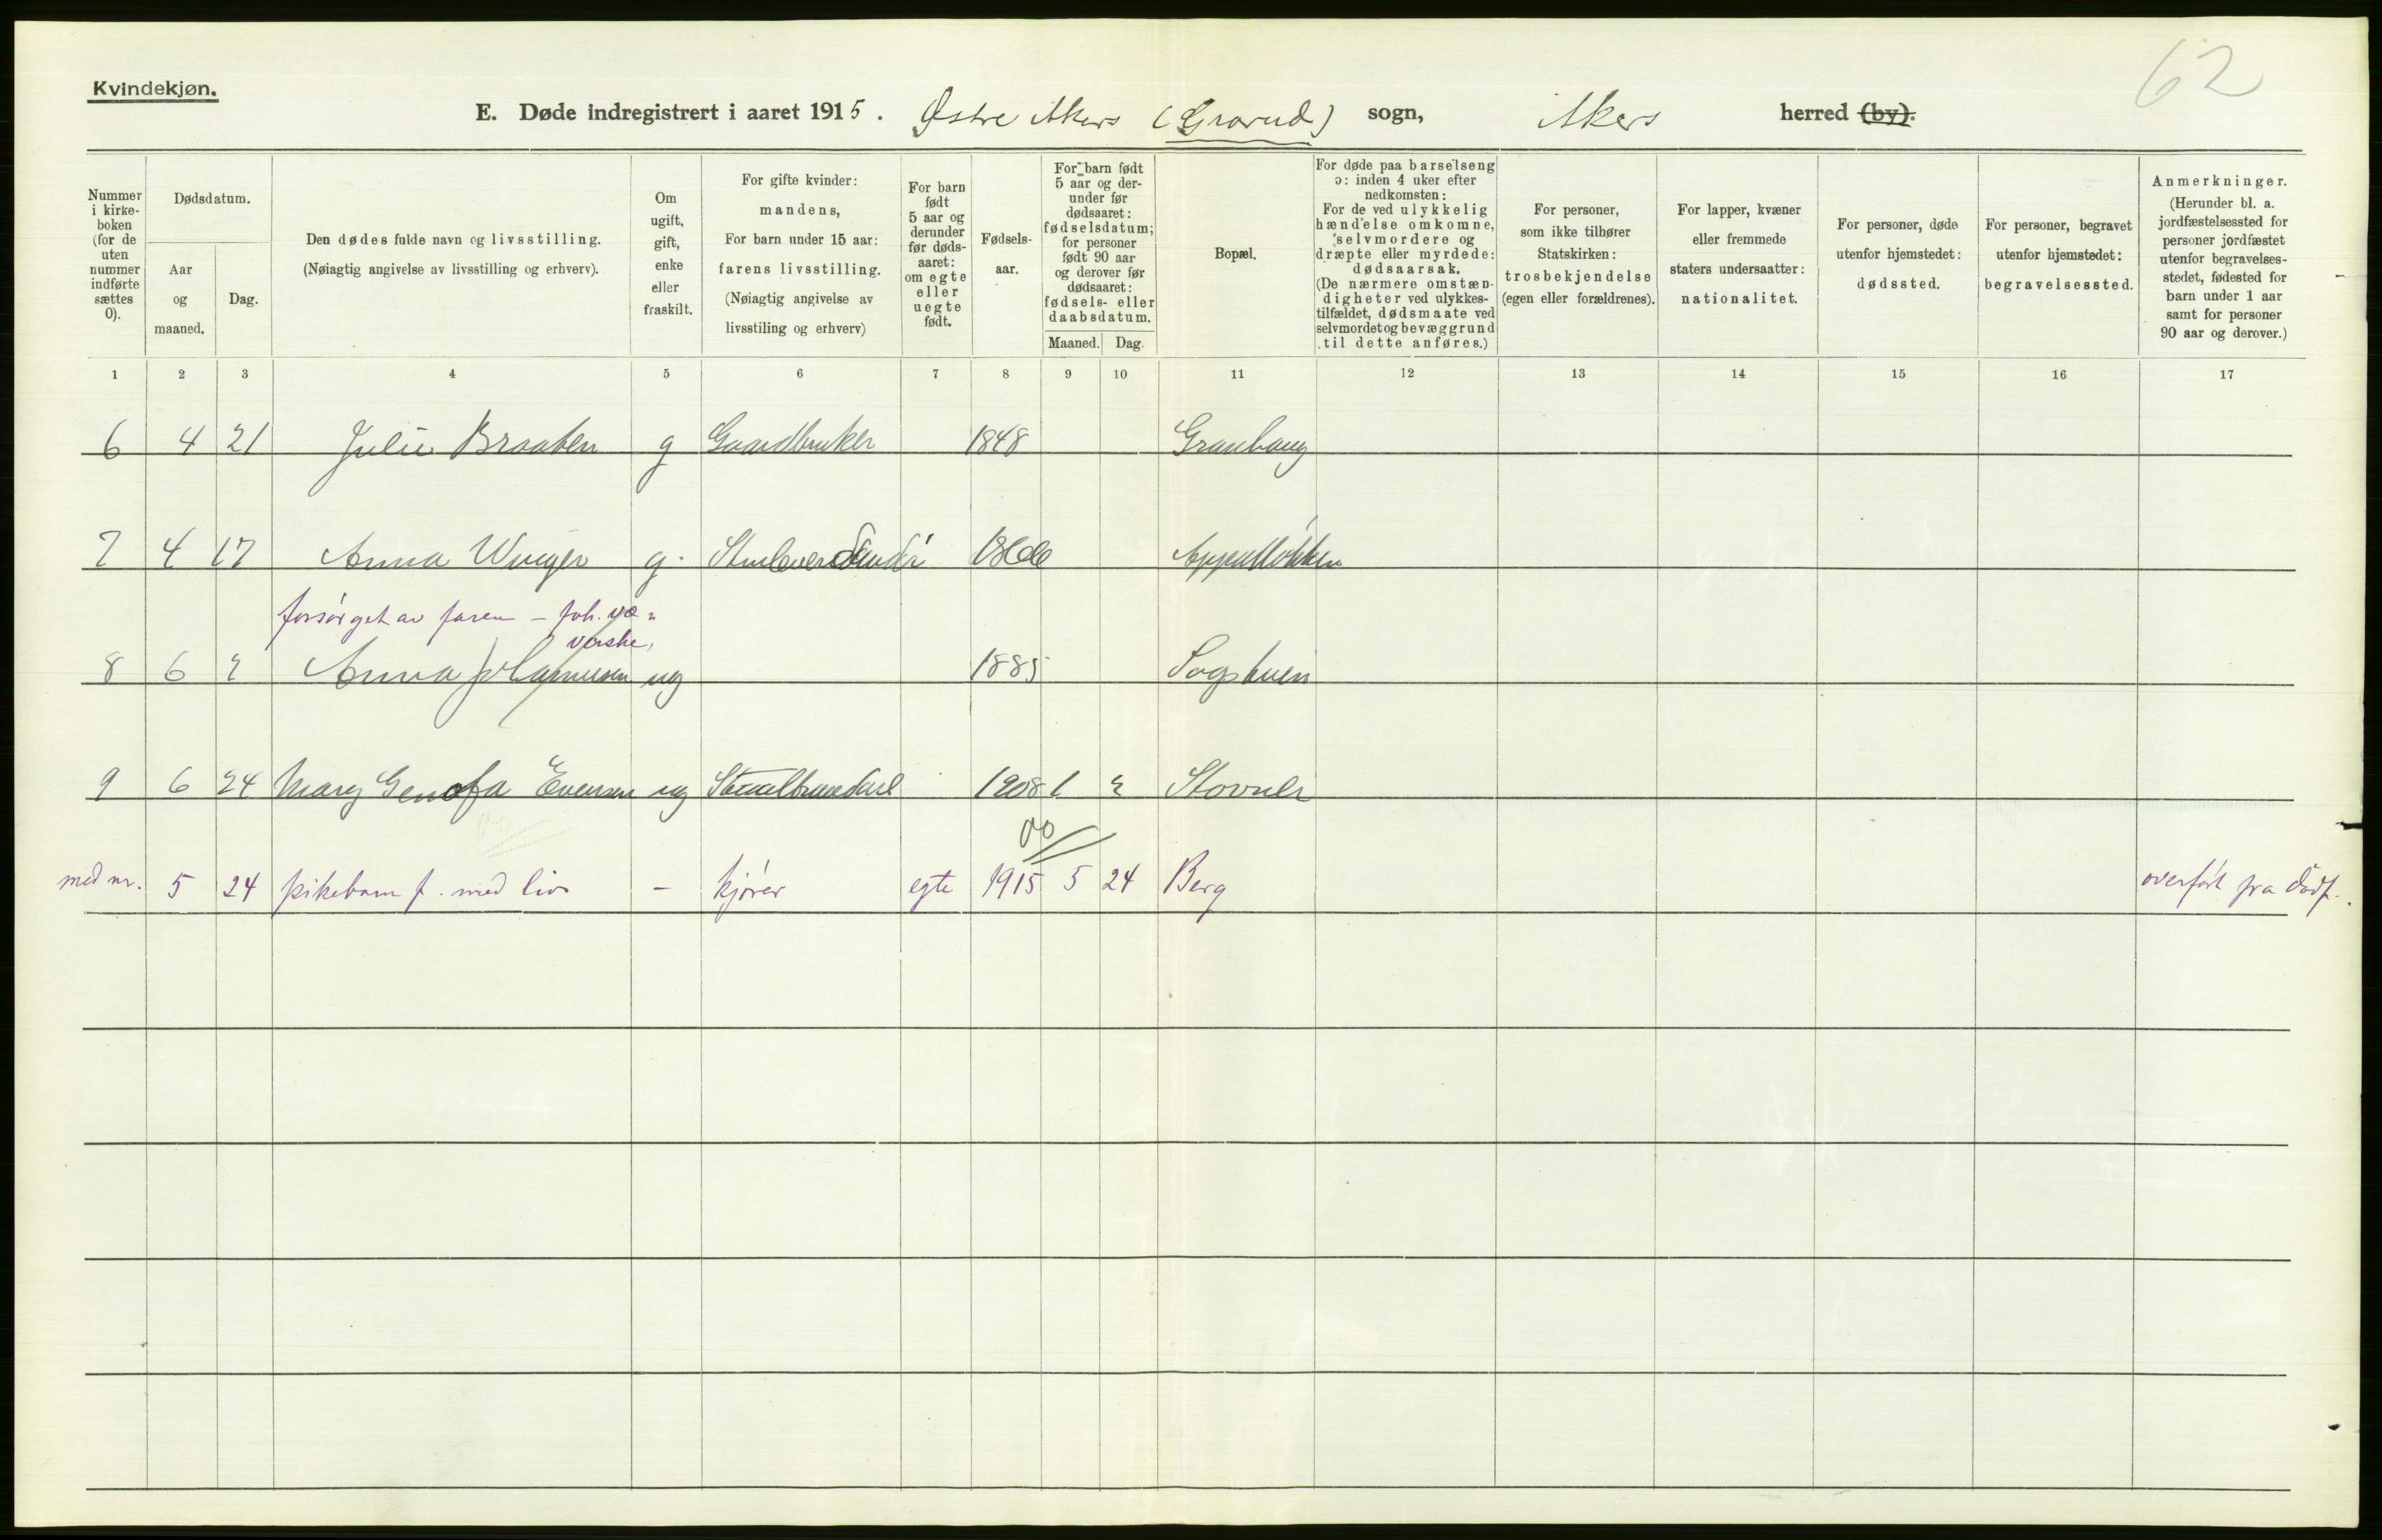 62
Kvindekjøn.
E. Døde indregistrert i aaret 1915. Østre Akers (Grorud) sogn, Akers herred (by).
Nummer i kirke-boken (for de uten nummer indførte sættes 0).
Dødsdatum.
Aar og maaned.
Dag.
Den dødes fulde navn og livsstilling.
(Nøiagtig angivelse av livsstilling og erhverv).
Om ugift, gift, enke eller fraskilt.
For gifte kvinder: mandens,
For barn under 15 aar: farens livsstilling.
(Nøiagtig angivelse av livsstiling og erhverv)
For barn født 5 aar og derunder før døds-aaret: om egte eller uegte født.
Fødsels-aar.
For barn født 5 aar og der-under før dødsaaret: fødselsdatum; for personer født 90 aar og derover før dødsaaret: fødsels- eller daabsdatum.
Maaned. Dag.
Bopæl.
For døde paa barselseng ɔ: inden 4 uker efter nedkomsten:
For de ved ulykkelig hændelse omkomne, selvmordere og dræpte eller myrdede: dødsaarsak.
(De nærmere omstæn-digheter ved ulykkes-tilfældet, dødsmaate ved selvmordet og bevæggrund til dette anføres.)
For personer, som ikke tilhører Statskirken: trosbekjendelse (egen eller forældrenes).
For lapper, kvæner eller fremmede staters undersaatter: nationalitet.
For personer, døde utenfor hjemstedet: dødssted.
For personer, begravet utenfor hjemstedet: begravelsessted.
Anmerkninger.
(Herunder bl. a. jordfæstelsessted for personer jordfæstet utenfor begravelses-stedet, fødested for barn under 1 aar samt for personer 90 aar og derover.)
1 2 3 4 5 6 7 8 9 10 11 12 13 14 15 16 17
6 4 21 Julie Braaten g Gaardbruker 1848 Granhaug
7 4 17 Anna Winger g.
forsørget av faren - fvh. væ-
verske,
8 6 2 Anna ug 1885 Sogstuen
9 6 24 Mary Evensen ug 1908 1 2 Stovner
med nr. 5 24 pikebarn f. med liv - kjører egte 1915 5 24 Berg overført fra dødf.